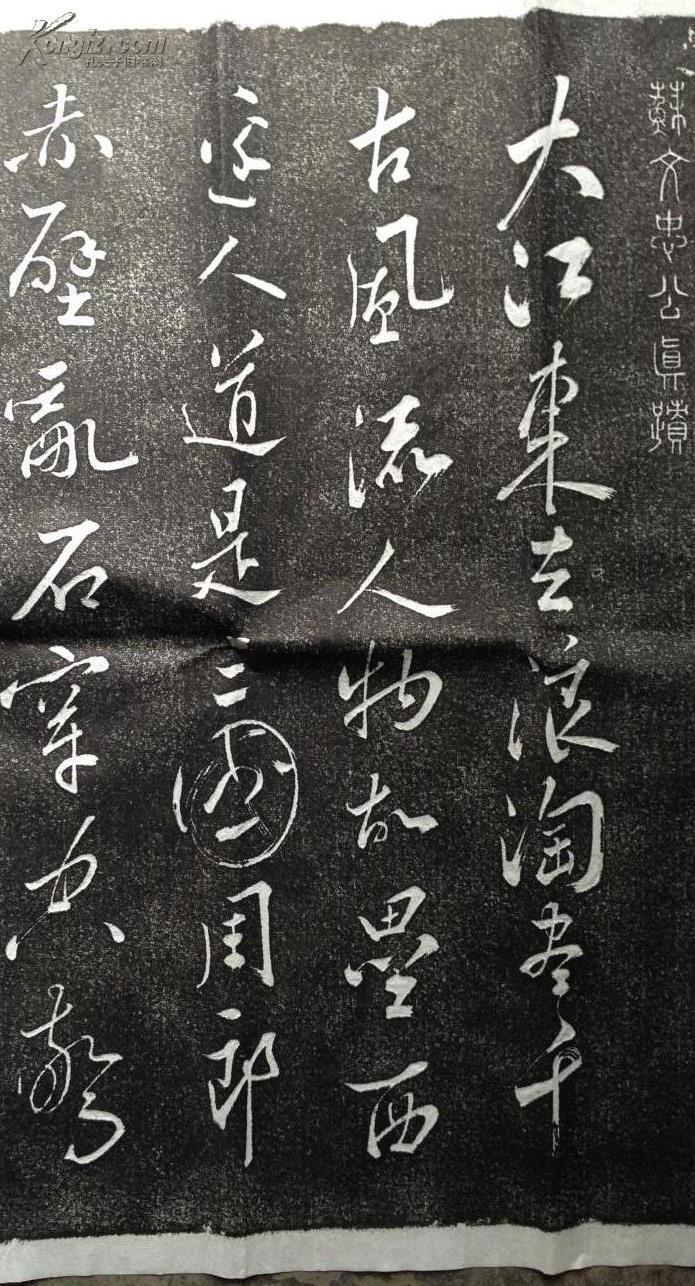 蘇文忠公真蹟
大江東去浪淘盡千
古風流人物故壘西
邊人道是三國周郎
赤壁亂石穿空驚
Kongfz.com
孔夫子旧书网